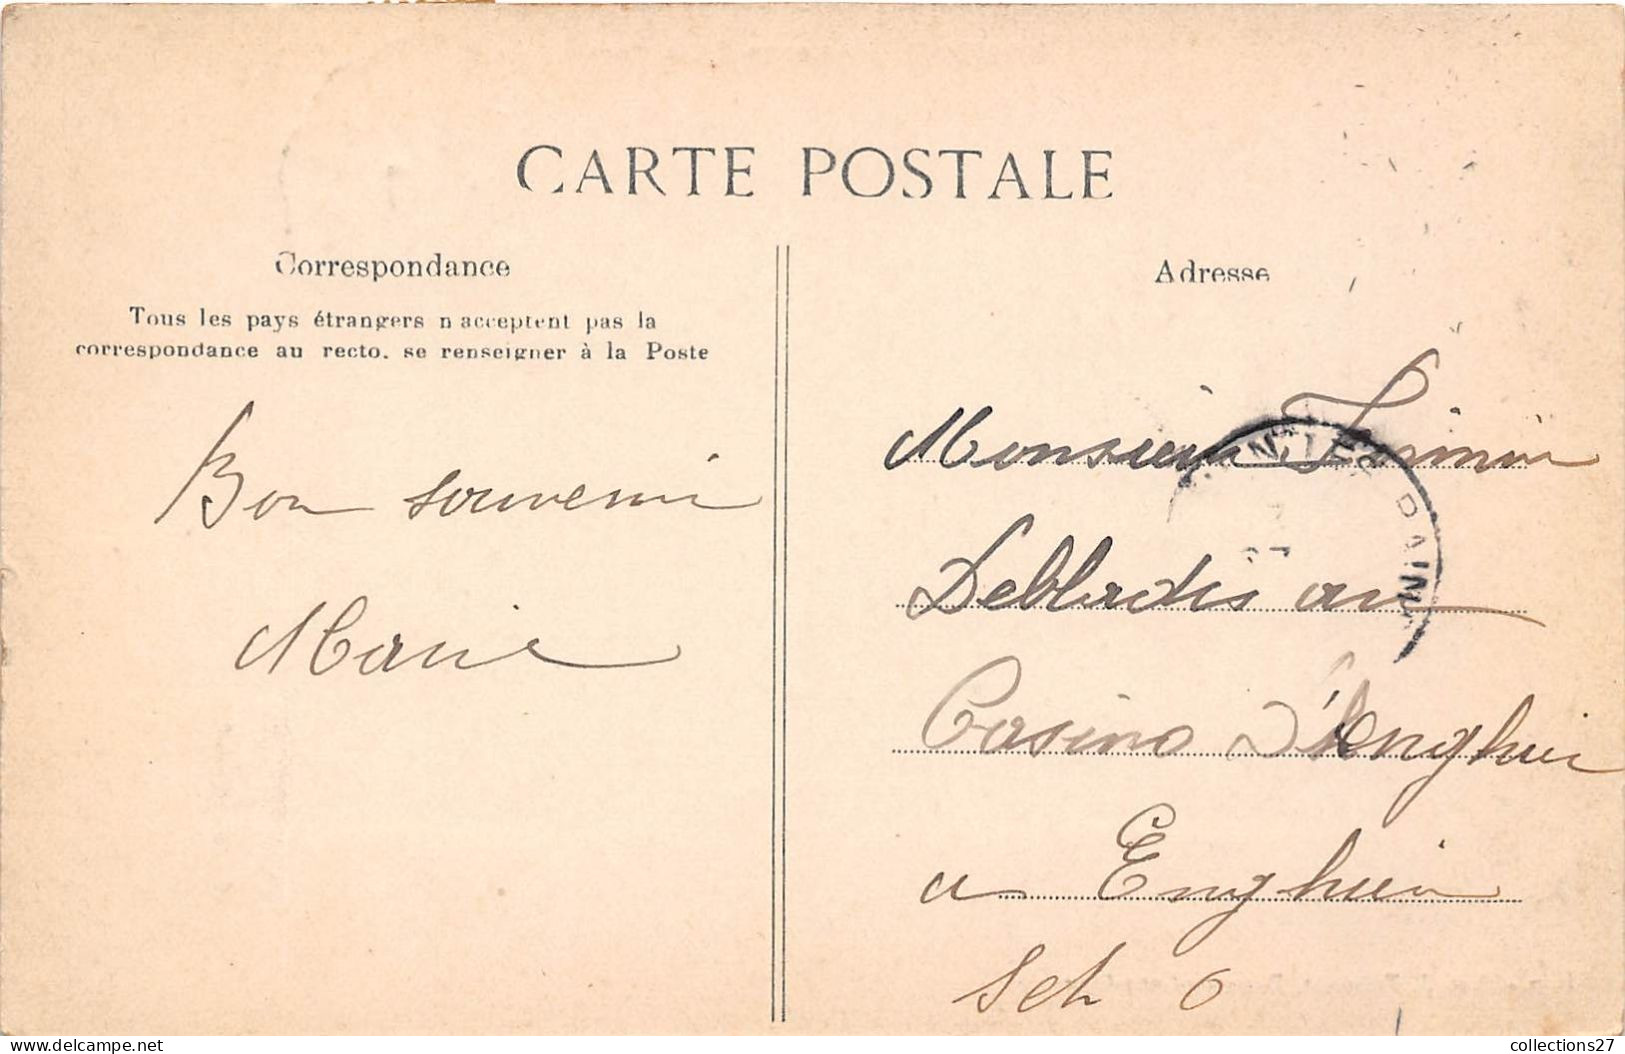 CARTE POSTALE
Correspondance
Tous les pays étrangers n'acceptent pas la
correspondance au recto. se renseigner à la Poste
Bon souvenir
Marie
Adresse
Monsieur Firmin
Debladis au
Casino D'Enghien
a Enghien
Set O
collections27